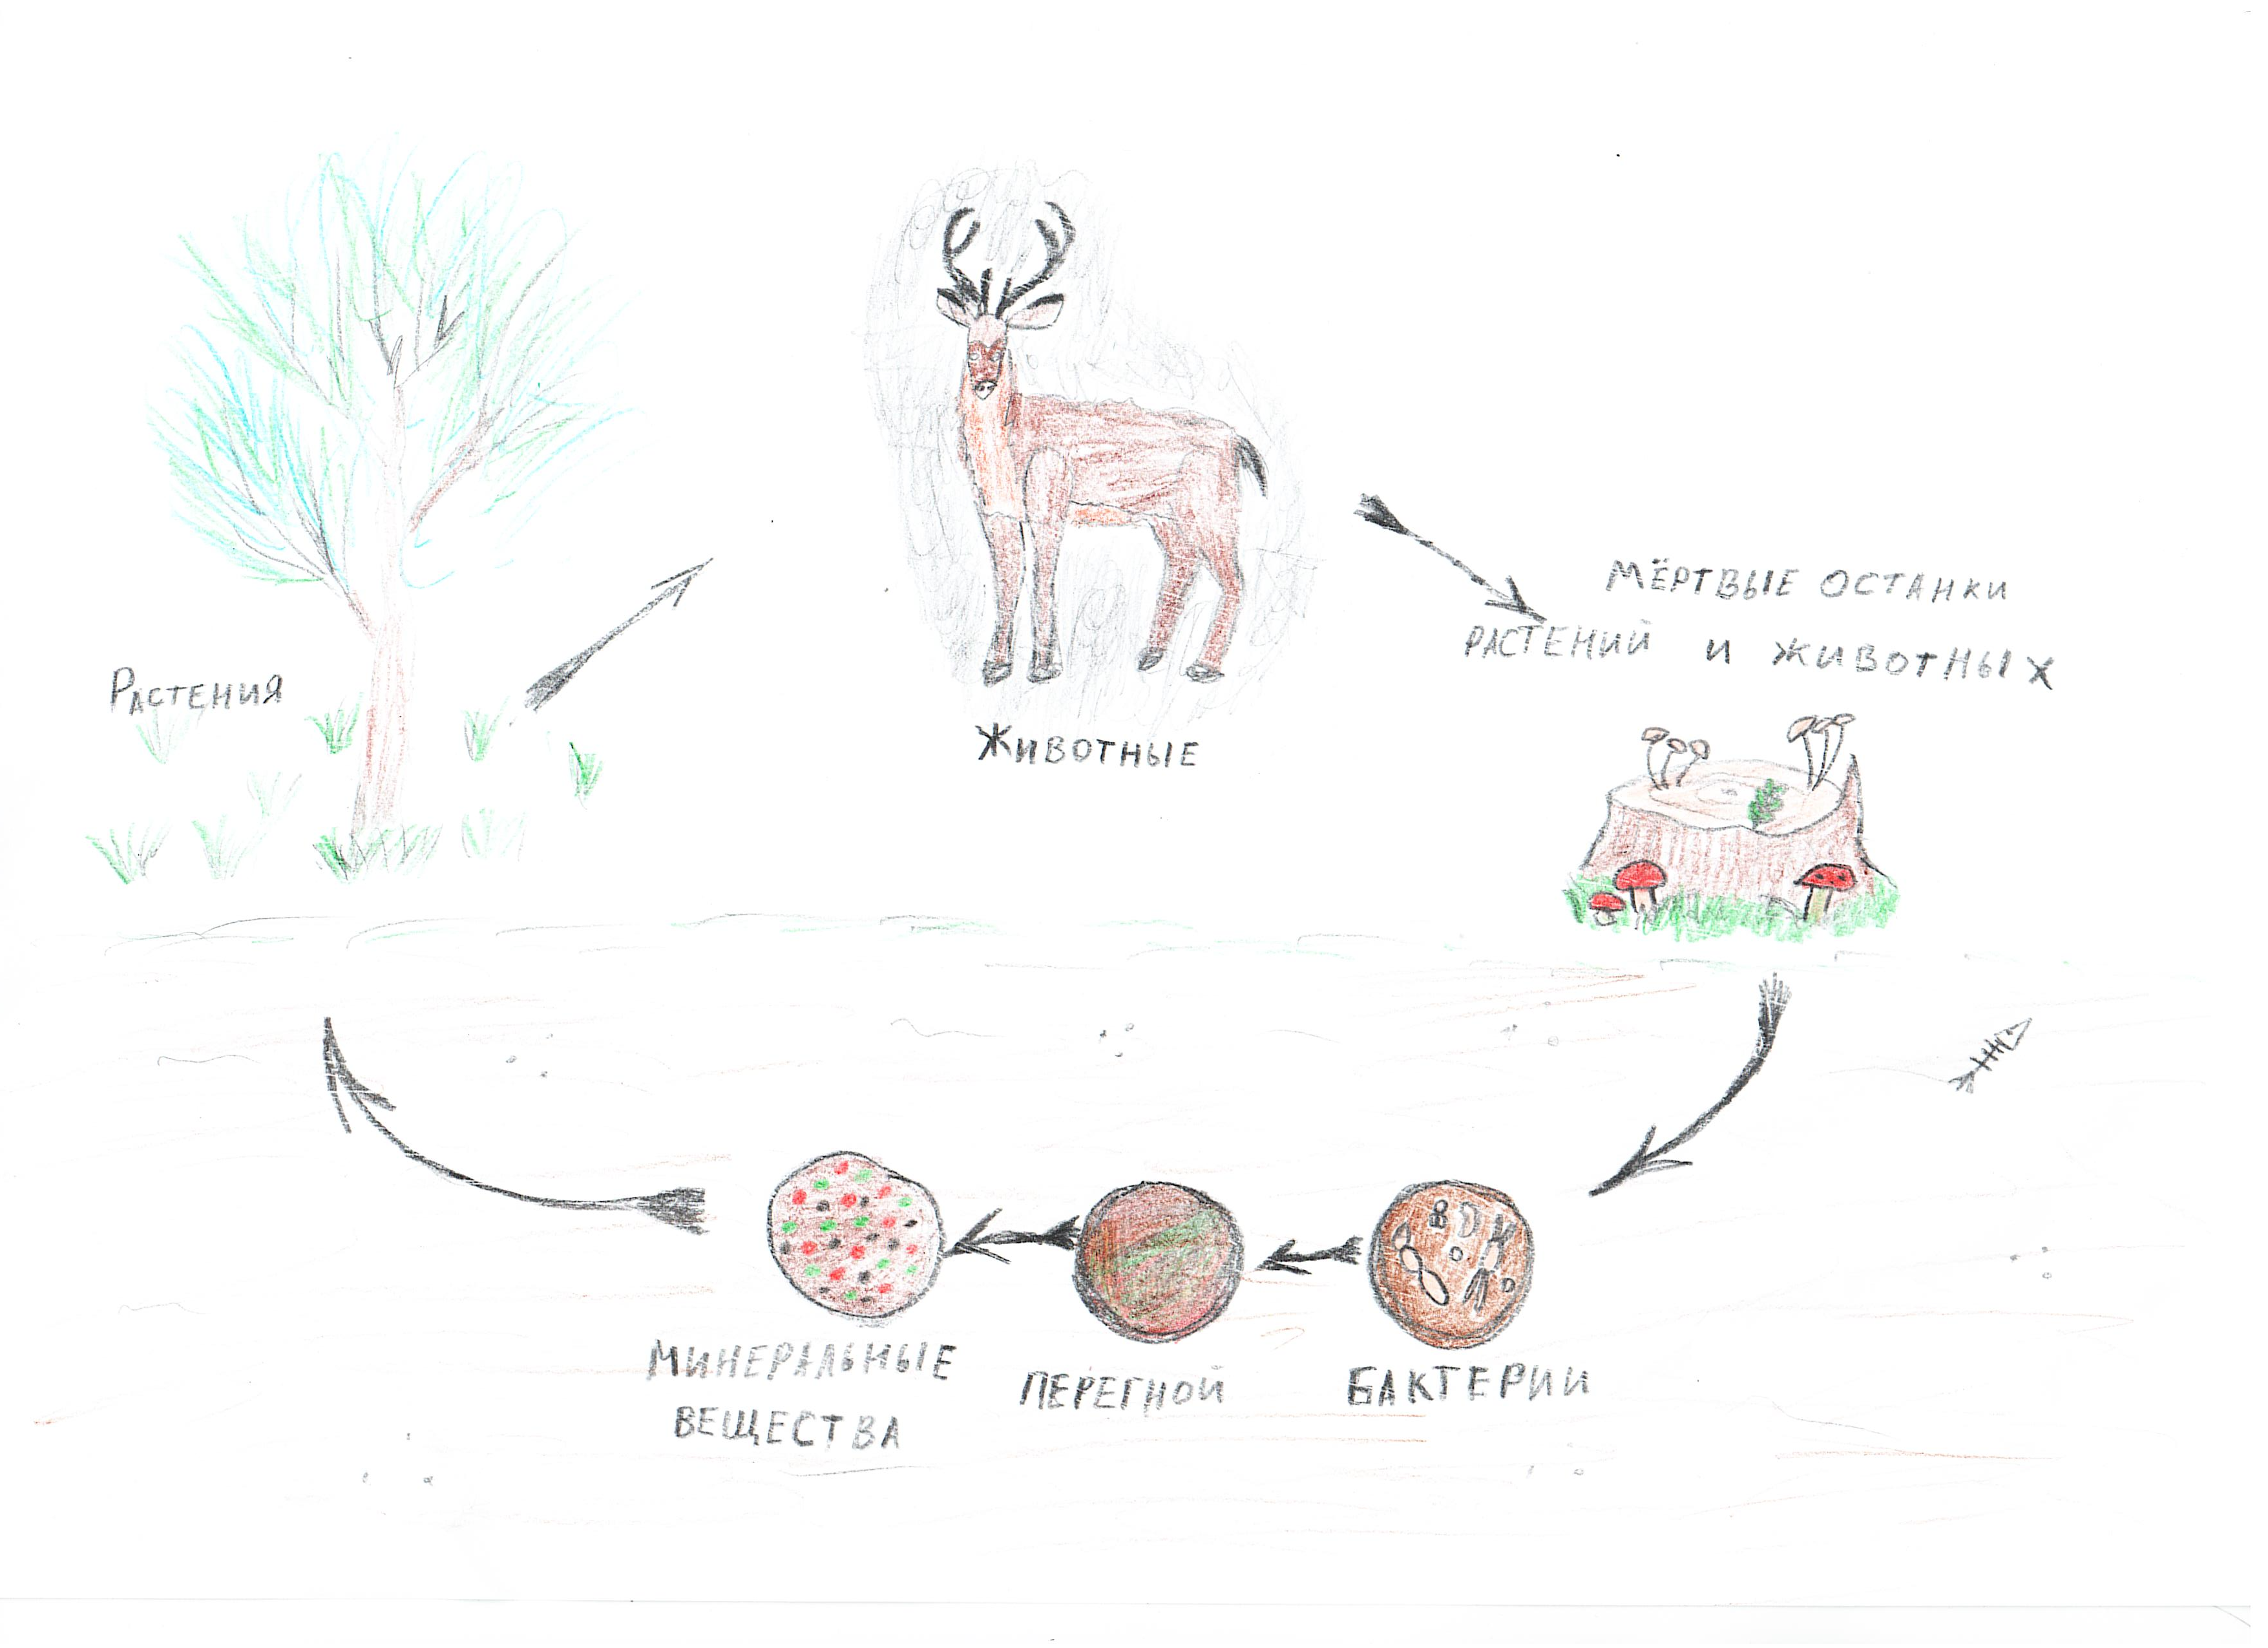 Растения
Животные
МЁРТВЫЕ ОСТАНКИ
РАСТЕНИЙ И ЖИВОТНЫХ
МИНЕРАЛЬНЫЕ
ВЕЩЕСТВА
ПЕРЕГНОЙ
БАКТЕРИИ